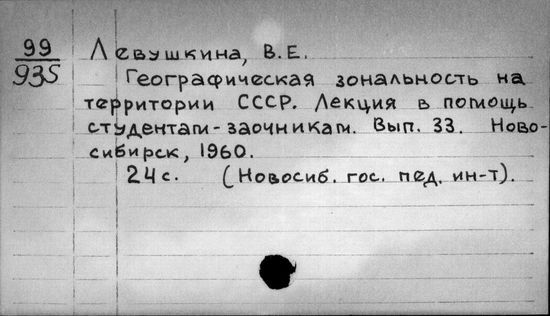 99
935
Левушкина, В.Е.
Географическая зональность на
территории СССР. Лекция в помощь
студентам-заочникам. Вып. 33. Ново-
сибирск, 1960.
24 с. (Новосиб. гос. пед. ин-т).